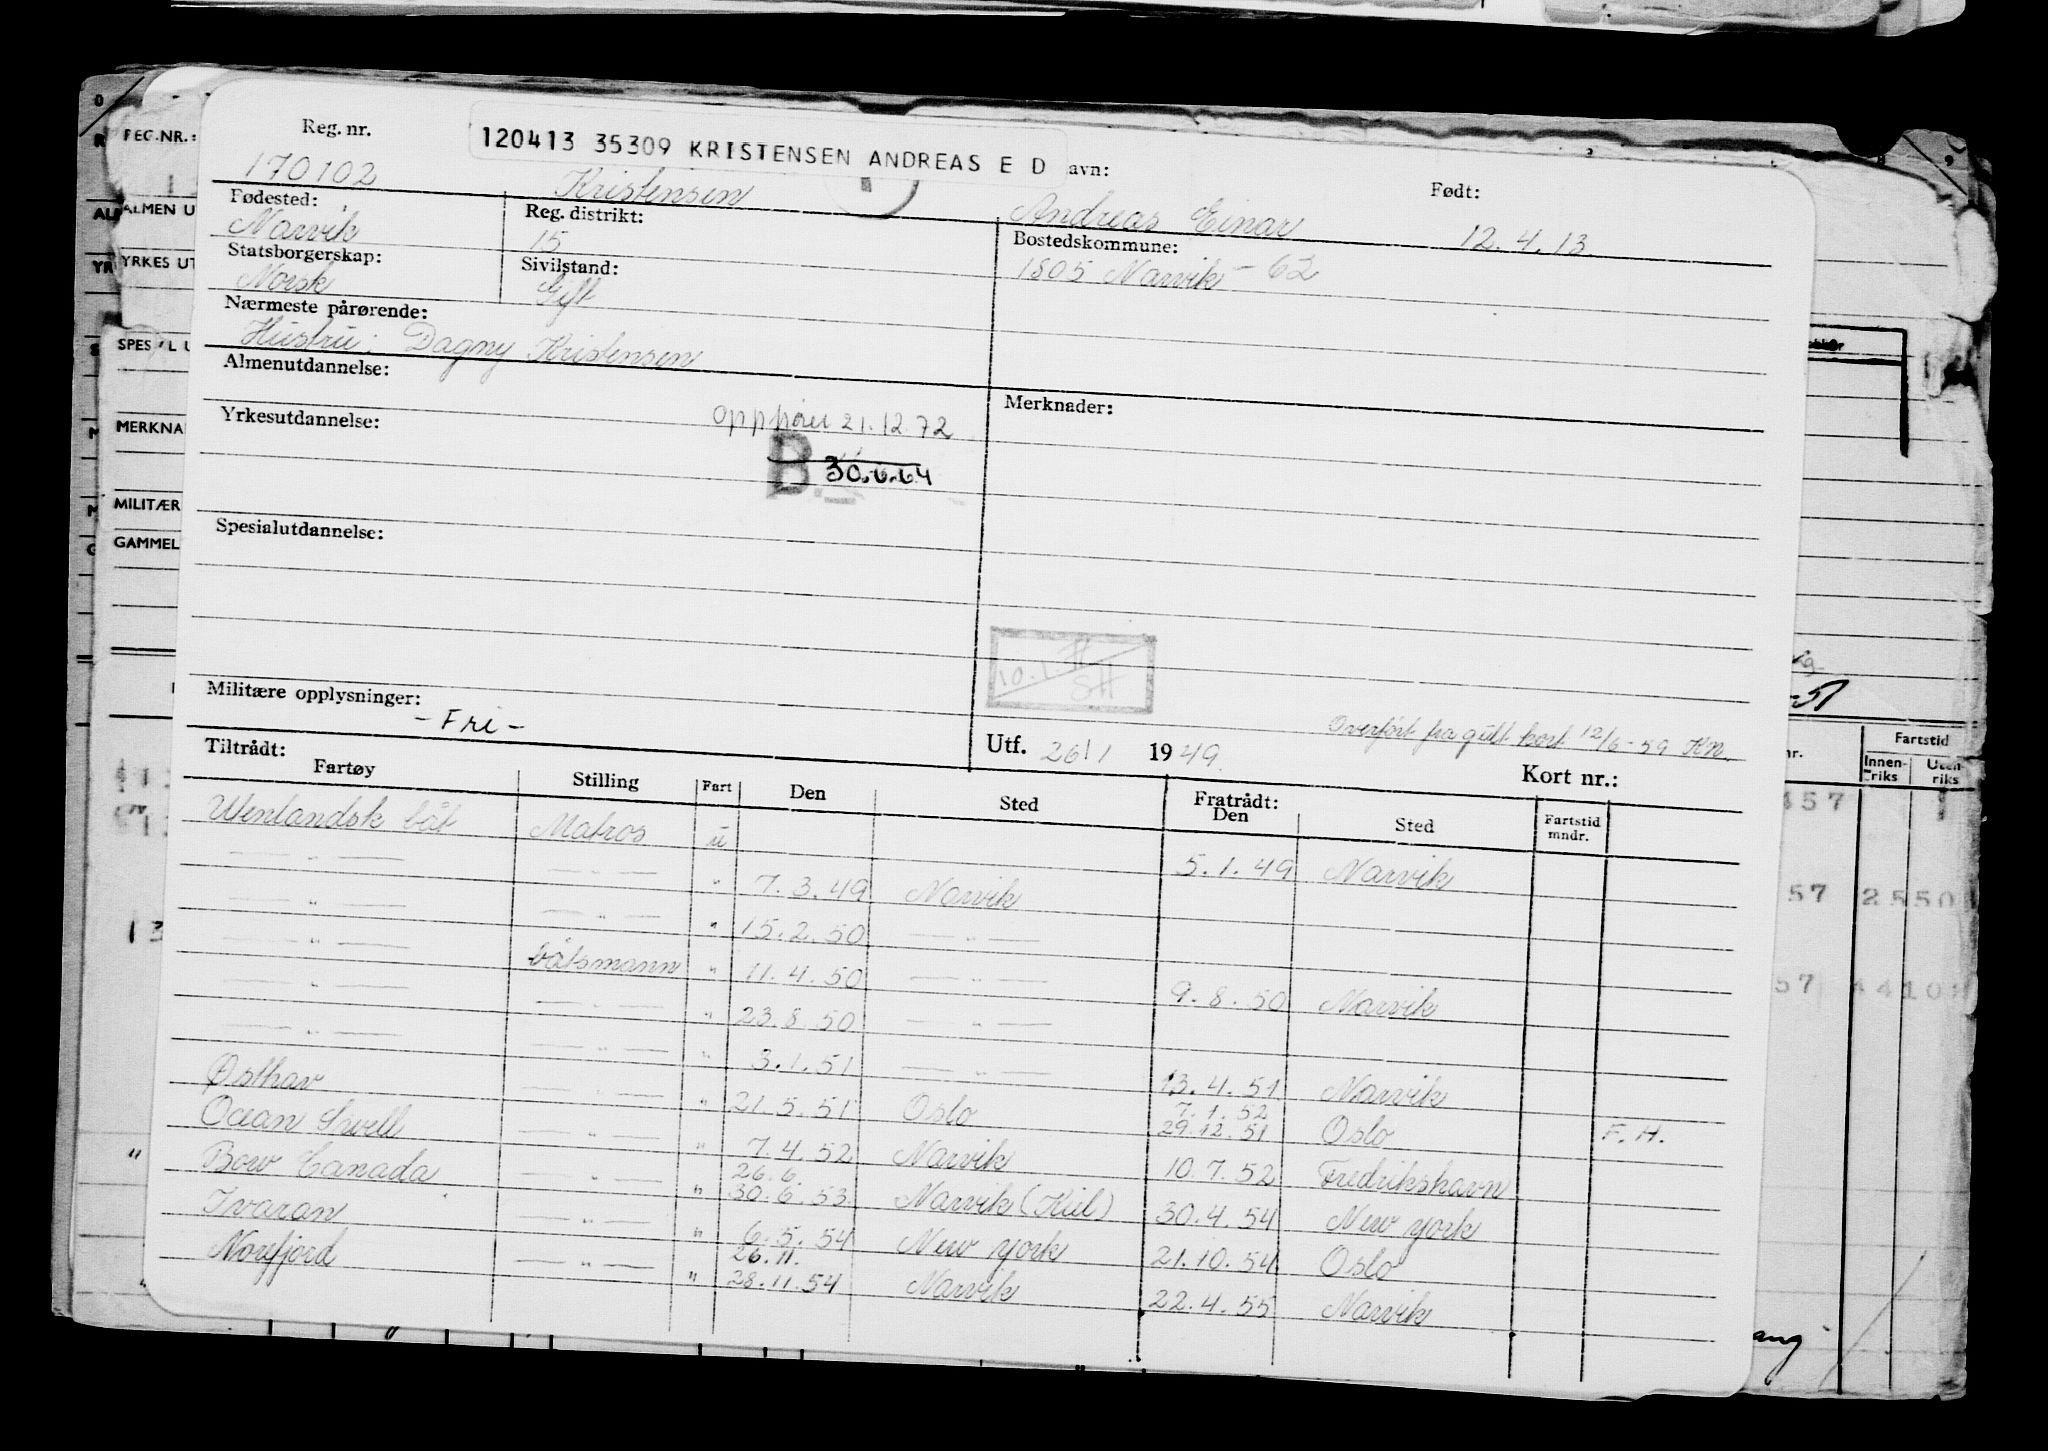 REG.NR.:
ALMEN U
YRKES UT
MERKNA
MILITÆR
GAMMEL
Reg. nr. 120413 35309 KRISTENSEN ANDREAS E D avn: Født:
170102 Kristensen Andreas Einar 12.4.13.
Fødested: Reg. distrikt: Bostedskommune:
Narvik 15 1805 Narvik - 62
Statsborgerskap: Sivilstand:
Norsk Gift
Nærmeste pårørende:
Hustru: Dagny Kristensen
Almenutdannelse: Merknader:
Yrkesutdannelse: Opphører 21.12.72
B. 30.6.64
Spesialutdannelse:
10.1.
Militære opplysninger: - Fri -
Overført fra gult kort 12/6-59 KM.
Utf. 26/1 1949. Kort nr.:
Tiltrådt: Fratrådt:
Fartøy Stilling Fart Den Sted Den Sted Fartstid mndr.
Utenlandsk båt Matros u 5.1.49 Narvik
— " — — " — " 7.3.49 Narvik
— " — — " — " 15.2.50 — " —
— " — båtsmann " 11.4.50 — " — 9.8.50 Narvik
— " — — " — " 23.8.50 — " —
— " — — " — " 3.1.51 — " — 13.4.51 Narvik
Østhav — " — " 21.5.51 Oslo 7.1.52 29.12.51 Oslo F.H.
Ocean Swell — " — " 7.4.52 Narvik 10.7.52 Fredrikshavn
Bow Canada — " — " 26.6. 30.6.53 Narvik (Kiel) 30.4.54 New York
Ivaran — " — " 6.5.54 New York 21.10.54 Oslo
Norefjord — " — " 26.11. 28.11.54 Narvik 22.4.55 Narvik
Fartstid
Innenriks Utenriks
457
57 2550
57 4410